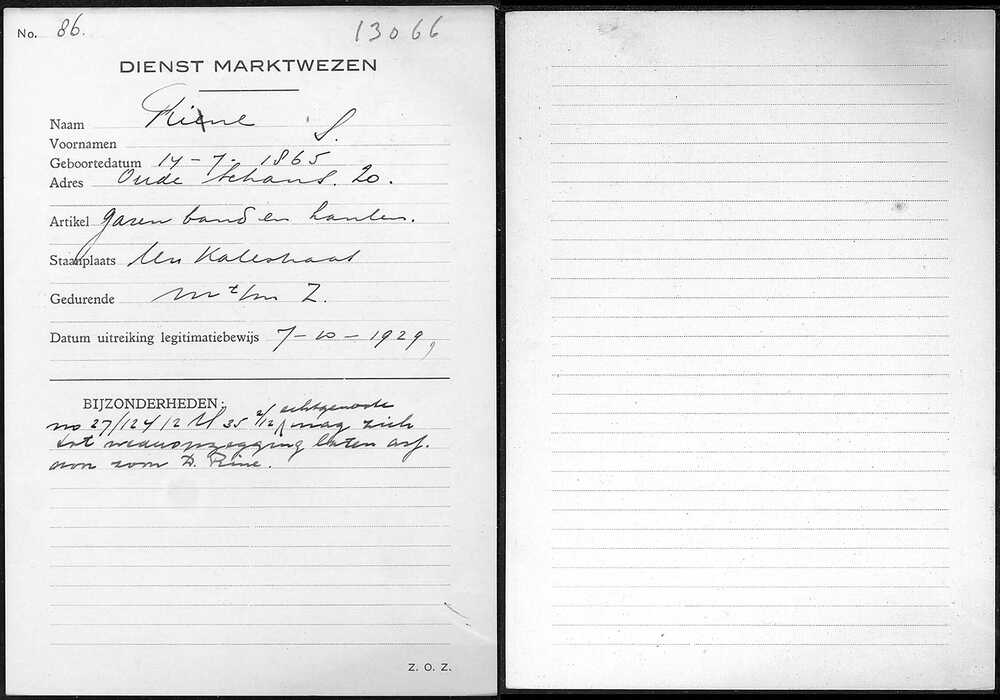 No. 86.
13066
DIENST MARKTWEZEN
Naam Riene S.
Voornamen
Geboortedatum 14-7-1865
Adres Oude Schans. 20.
Artikel garen band en kanten.
Staanplaats Uilenburgerstraat
Gedurende M t/m Z.
Datum uitreiking legitimatiebewijs 7-10-1929
BIJZONDERHEDEN:
echtgenoote
no 27/124/2 M 35 2/12 mag zich
tot wederopzegging laten
zoon D. Rine.
Z. O. Z.